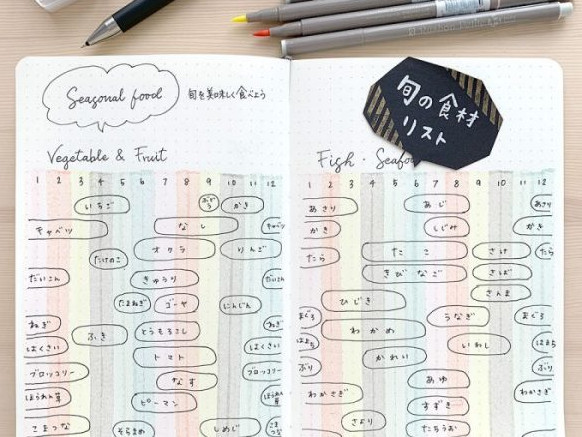 Seasonal food
旬を美味しく食べよう
旬の食材
リスト
Vegetable & Fruit
1 2 3 4 5 6 7 8 9 10 11 12
いちご ぶどう かき
キャベツ なし キャベツ
たけのこ オクラ りんご
だいこん きゅうり だいこん
たまねぎ ゴーヤ にんじん
ねぎ ふき とうもろこし ねぎ
はくさい トマト はくさい
ブロッコリー なす ブロッコリー
ほうれん草 ピーマン ほうれん草
こまつな そらまめ しめじ こまつな
Fish・Seafoo
1 2 3 4 5 6 7 8 9 10 11 12
あさり あじ あさり
かき しじみ かき
たら たこ さけ たら
きびなご さば
ひじき さんま
まぐろ わかめ うなぎ まぐろ
はまち かれい いわし はまち
ぶり あゆ ぶり
わかさぎ すずき わかさぎ
さより たちうお